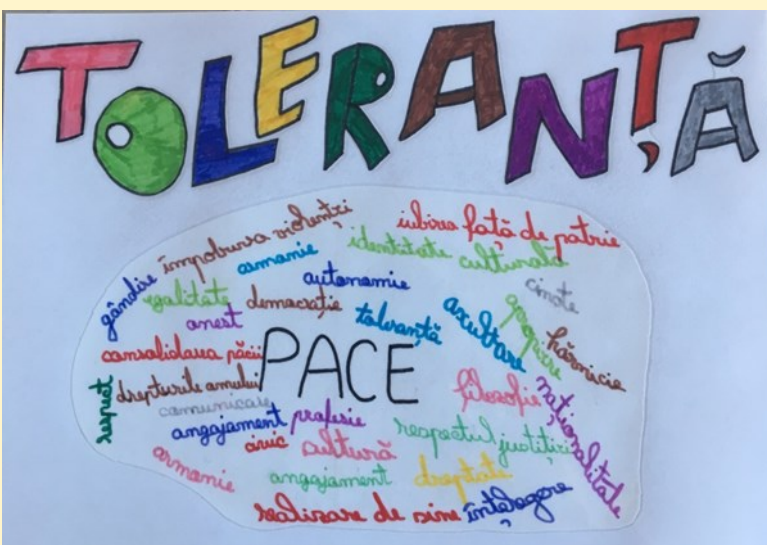 TOLERANȚĂ
împotriva violenței
iubirea față de patrie
armonie
identitate culturală
gândire
egalitate
democrație
autonomie
cinste
onest
toleranță
ascultare
hărnicie
consolidarea păcii
PACE
respect
drepturile omului
comunicare
filosofie
naționalitate
angajament
profesie
civic
cultură
respectul justiției
armonie
angajament
dreptate
realizare de sine
înțelegere